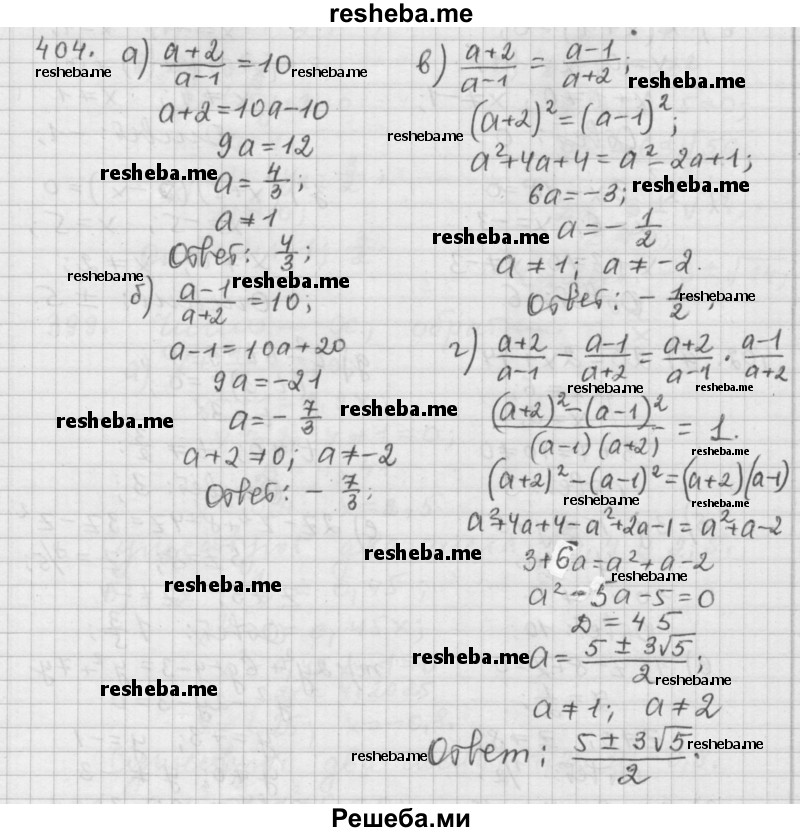 resheba.me
404. а) (a+2)/(a-1) = 10
resheba.me resheba.me
a+2=10a-10
9a=12
resheba.me
a = 4/3;
a ≠ 1
Ответ: 4/3;
resheba.me resheba.me
б) (a-1)/(a+2) = 10;
a-1=10a+20
9a=-21
resheba.me resheba.me
a = - 7/3
a+2≠0; a≠-2
Ответ: - 7/3;
resheba.me
resheba.me
resheba.me
в) (a+2)/(a-1) = (a-1)/(a+2);
resheba.me
(a+2)²=(a-1)²;
resheba.me
a²+4a+4=a²-2a+1;
6a=-3;
resheba.me
resheba.me
a = - 1/2
a ≠ 1; a ≠ -2.
Ответ: - 1/2;
resheba.me
г) (a+2)/(a-1) - (a-1)/(a+2) = (a+2)/(a-1) · (a-1)/(a+2)
resheba.me resheba.me
((a+2)²-(a-1)²)/((a-1)(a+2)) = 1.
resheba.me
(a+2)²-(a-1)²=(a+2)(a-1)
resheba.me resheba.me
a²+4a+4-a²+2a-1=a²+a-2
3+6a=a²+a-2
resheba.me
a²-5a-5=0
D = 45
resheba.me
a = (5 ± 3√5)/2;
resheba.me
a ≠ 1; a ≠ 2
resheba.me
Ответ: (5 ± 3√5)/2.
resheba.me
Решеба.ми